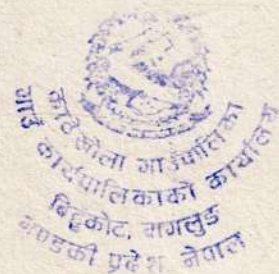 काठेखोला गाउँपालिका
गाउँ कार्यपालिकाको कार्यालय
बिहुकोट, बागलुङ
गण्डकी प्रदेश, नेपाल